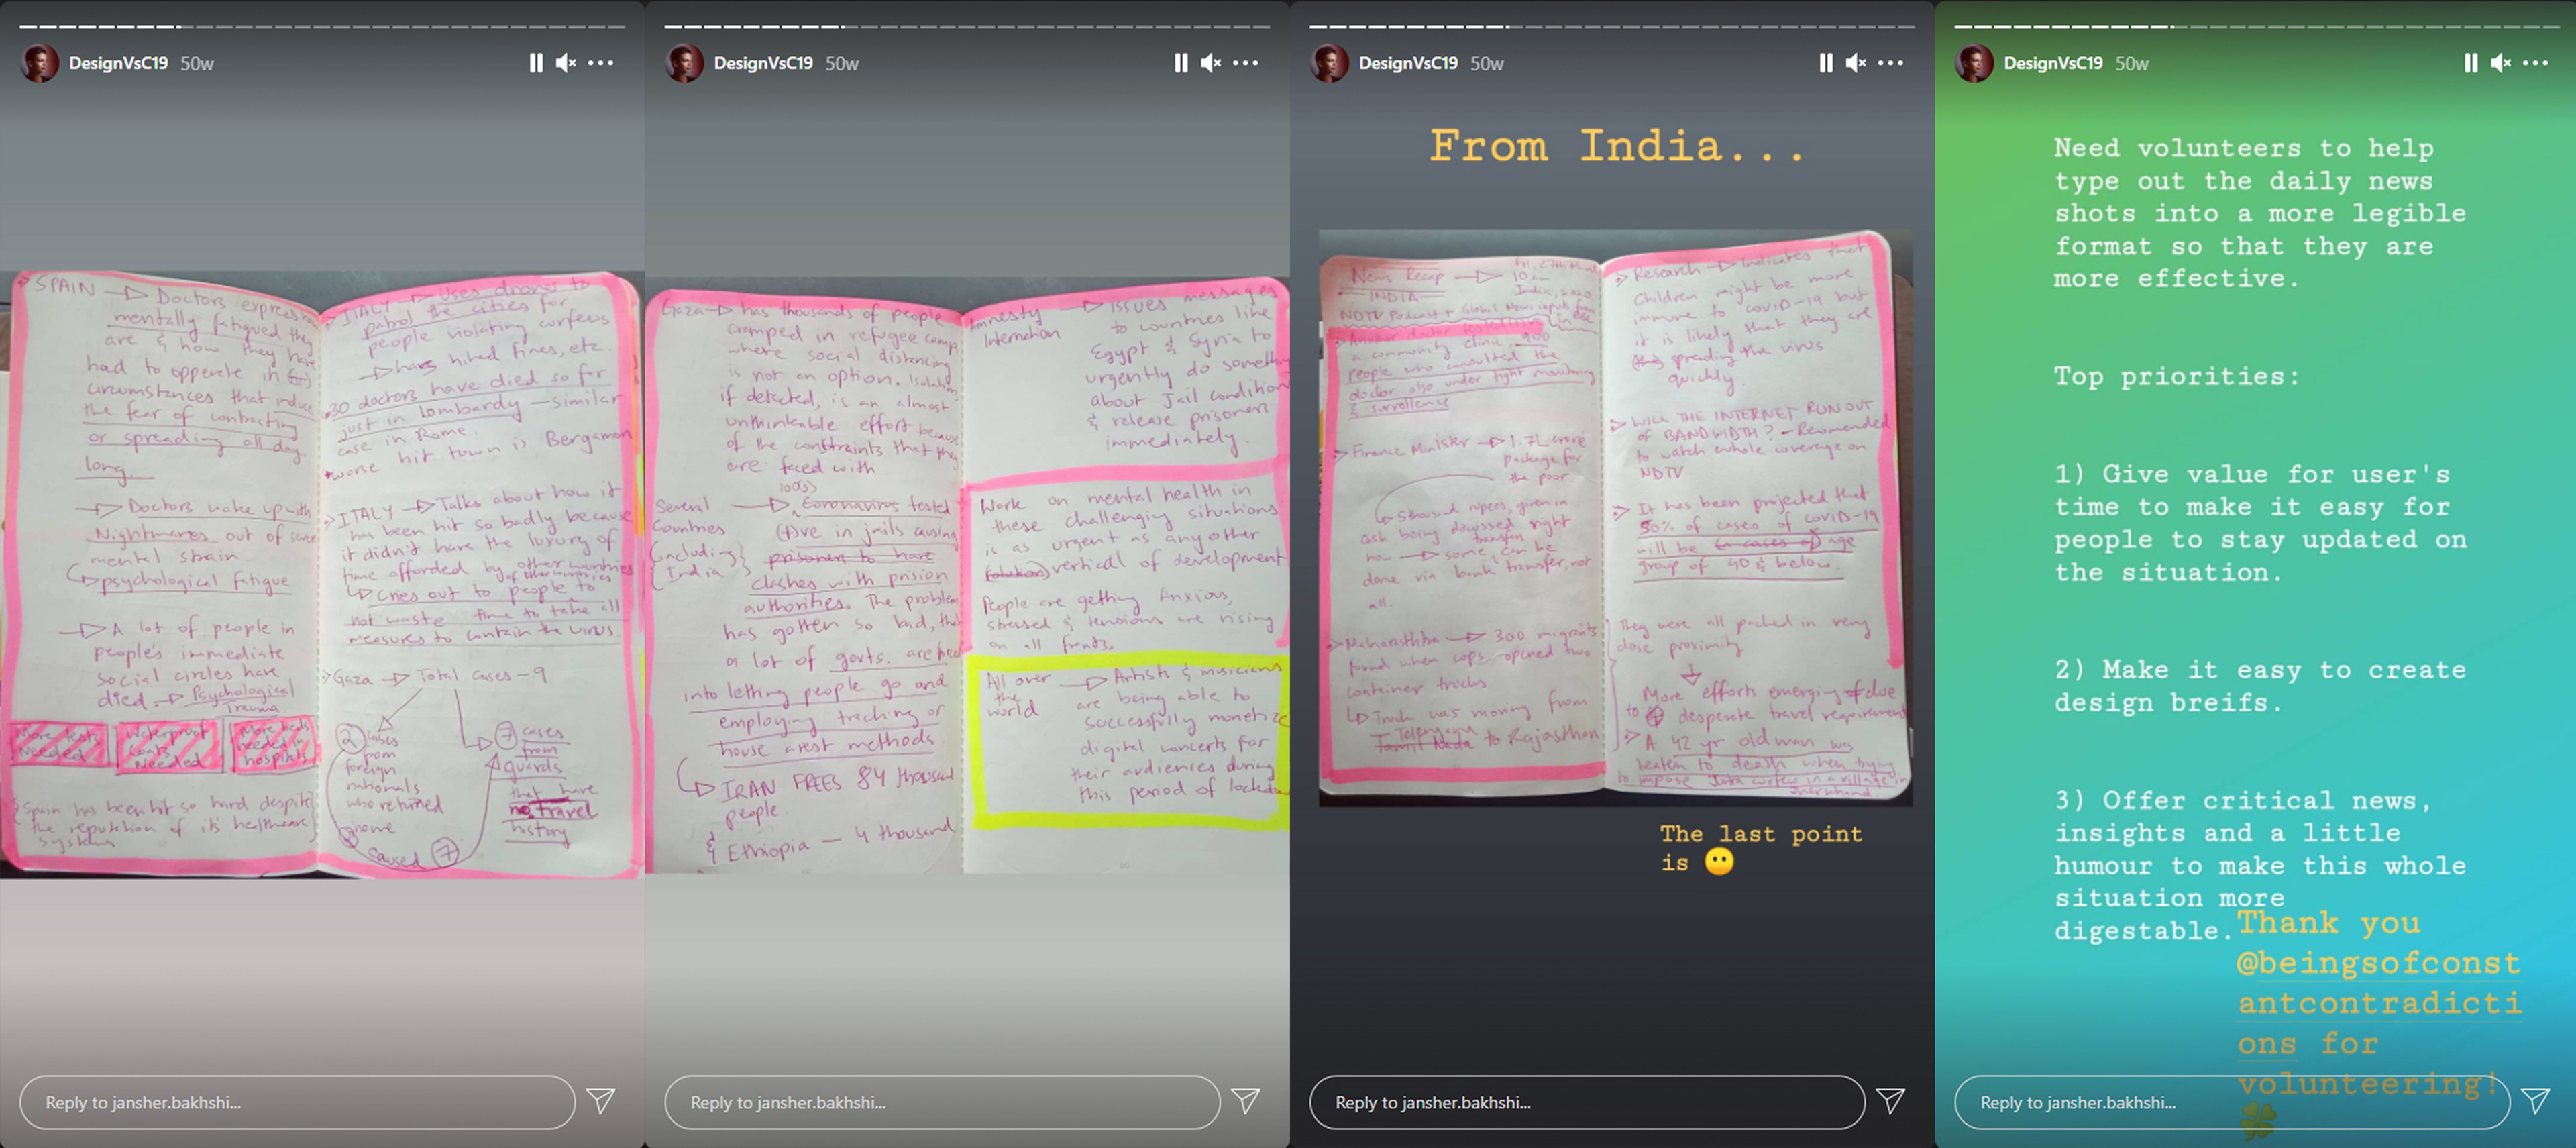 DesignVsC19 50w
SPAIN → Doctors express
mentally fatigued they
are & how they have
had to opperate in
circumstances that induce
the fear of contracting
or spreading all day
long.
→ Doctors wake up with
Nightmares out of
mental strain
↳ psychological fatigue
→ A lot of people in
people's immediate
social circles have
died → Psychological
Trauma
More tests
Needed
Waterproof
Coats
Needed
More beds
needed in
hospitals
Spain has been hit so hard despite
the reputation of it's healthcare
system
ITALY → Uses drones to
patrol the cities for
people violating curfews
→ has hiked fines, etc.
30 doctors have died so far
just in Lombardy - similar
case in Rome.
worse hit town is Bergamon
ITALY → Talks about how it
has been hit so badly because
it didn't have the luxury of
time afforded by other countries
↳ cries out to people to
not waste time to take all
measures to contain the virus.
Gaza → Total cases - 9
2 cases
from
foreign
nationals
who returned
home
caused 7
7 cases
from
guards
that have
no travel
history
Reply to jansher.bakhshi...
DesignVsC19 50w
Gaza → has thousands of people
cramped in refugee camp
where social distancing
is not an option. Isolation,
if detected, is an almost
unthinkable effort because
of the constraints that they
are faced with.
Several
Countries
(including
India)
→ 100(s) Coronavirus tested
(+)ve in jails causing
prisoners to have
clashes with prision
authorities. The problem
has gotten so bad, that
a lot of govts. are
into letting people go and
employing tracking or
house arest methods
↳ IRAN FREES 84 thousand
people.
& Ethiopia - 4 thousand
Amnesty
Internation
→ issues messages
to countries like
Egypt & Syria to
urgently do something
about Jail conditions
& release prisoners
immediately.
Work on mental health in
these challenging situations
is as urgent as any other
vertical of development
People are getting Anxious,
stressed & tensions are rising
on all fronts.
All over
the
world
→ Artists & musicians
are being able to
successfully monetize
digital concerts for
their audiences during
this period of lockdown
Reply to jansher.bakhshi...
DesignVsC19 50w
From India...
News Recap →
INDIA
Fri, 27th March
10 am
India, 2020
NDTV Podcast + Global News
Another doctor tested
a community clinic, 900
people who consulted the
doctor also under tight monitoring
& survellence
Finance Minister → 1.7L crore
package for
the poor
↳ 5 thousand rupees, given in
cash being discussed right
now → some transfers can be
done via bank transfer, not
all.
Maharashtra → 300 migrants
found when cops opened two
container trucks
↳ Truck was moving from
Telengana
Tamil Nadu to Rajasthan
Research → Indicates that
Children might be more
immune to COVID-19 but
it is likely that they are
spreading the virus
quickly.
WILL THE INTERNET RUN OUT
OF BANDWIDTH? - Recomended
to watch whole coverage on
NDTV
It has been projected that
50% of cases of COVID-19
will be age
group of 40 & below.
They were all packed in very
close proximity
↓
More efforts emerging due
to desperate travel requirement
A 42 yr old man was
beaten to death when trying
to impose Jnta curfew in a village in
Jharkhand
The last point
is 😶
Reply to jansher.bakhshi...
DesignVsC19 50w
Need volunteers to help
type out the daily news
shots into a more legible
format so that they are
more effective.
Top priorities:
1) Give value for user's
time to make it easy for
people to stay updated on
the situation.
2) Make it easy to create
design breifs.
3) Offer critical news,
insights and a little
humour to make this whole
situation more
digestable.
Thank you
@beingsofconst
antcontradicti
ons for
volunteering!
🍀
Reply to jansher.bakhshi...